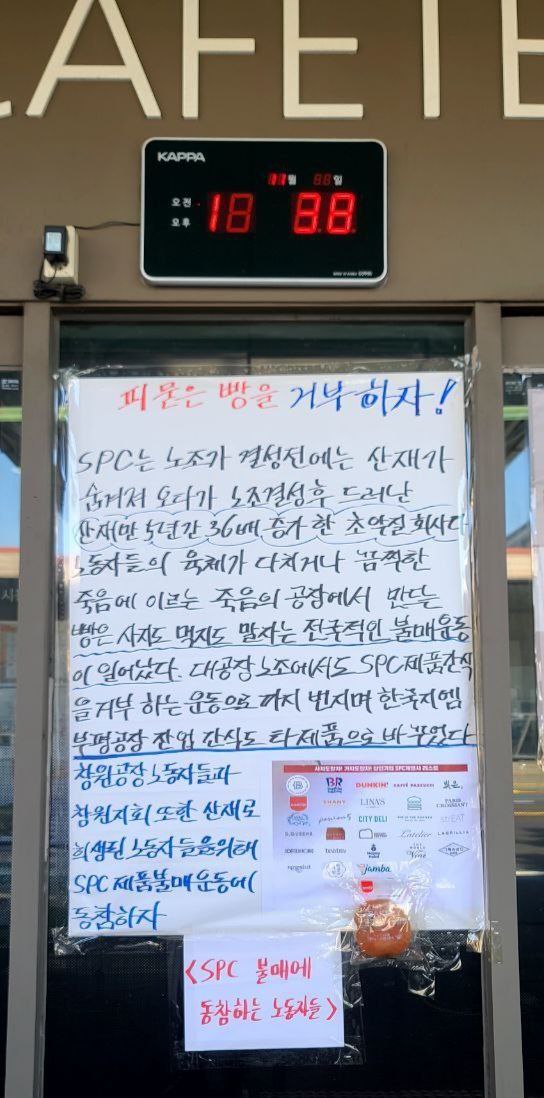 CAFETE
KAPPA
월 일
오전
오후
피 묻은 빵을 거부하자!
SPC는 노조가 결성전에는 산재가
숨겨져 오다가 노조결성후 드러난
산재만 5년간 36배 증가 한 초악질 회사다
노동자들의 육체가 다치거나 끔찍한
죽음에 이르는 죽음의 공장에서 만드는
빵은 사지도 먹지도 말자는 전국적인 불매운동
이 일어났다. 대공장 노조에서도 SPC제품간식
을 거부 하는 운동으로 까지 번지며 한국지엠
부평공장 잔업 간식도 타제품으로 바꾸었다
창원공장 노동자들과
창원지회 또한 산재로
희생된 노동자들을위해
SPC제품불매운동에
동참하자
사지도말자! 가지도말자! 살인기업 SPC계열사 리스트
BR DUNKIN' CAFFÈ PASCUCCI 빚은
SHANY LINA'S PARIS CROISSANT
CITY DELI EAT
QUEENS L'atelier LAGRILLIA
Jamba
<SPC 불매에
동참하는 노동자들>